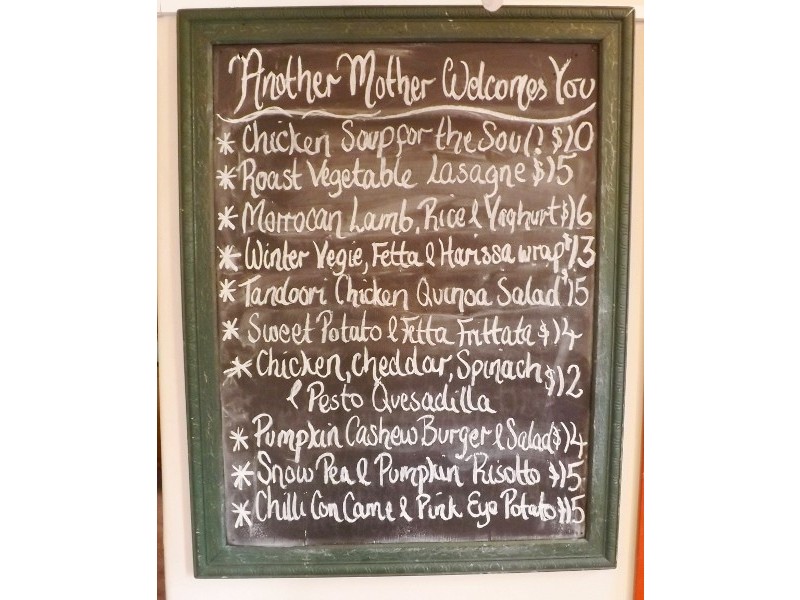 Another Mother Welcomes You
* Chicken Soup for the Soul! $10
* Roast Vegetable Lasagne $15
* Morrocan Lamb, Rice & Yoghurt $16
* Winter Vegie, Fetta & Harissa wrap $13
* Tandoori Chicken Quinoa Salad $15
* Sweet Potato & Fetta Frittata $14
* Chicken, Cheddar, Spinach $12
& Pesto Quesadilla
* Pumpkin Cashew Burger & Salad $14
* Snow Pea & Pumpkin Risotto $15
* Chilli Con Carne & Pink Eye Potato $15